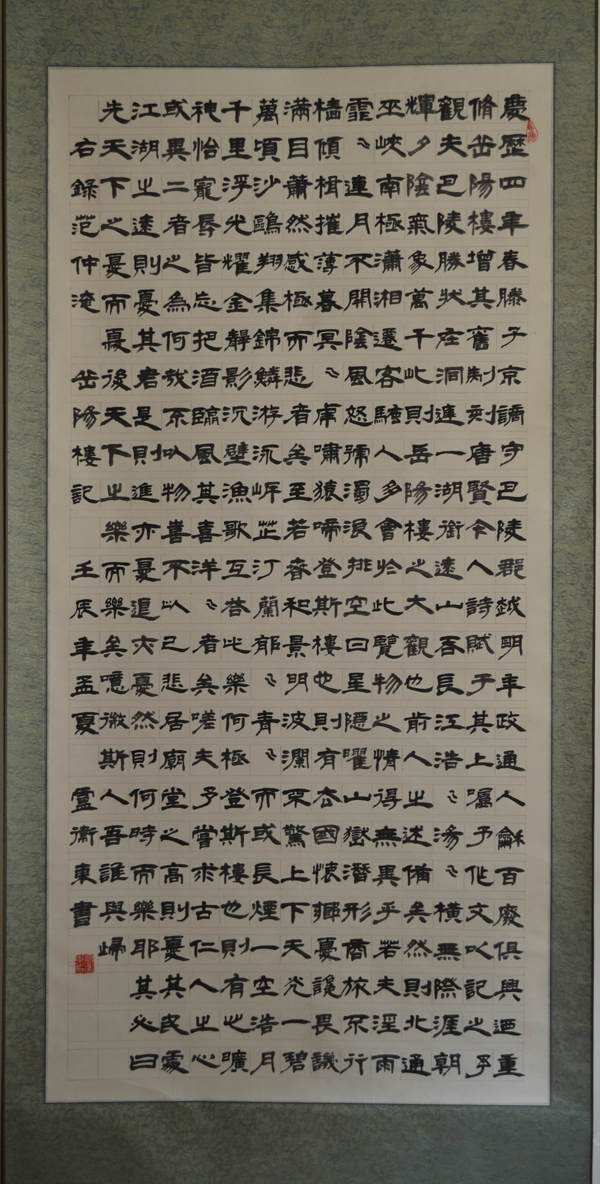 慶歷四年春滕子京謫守巴陵郡越明年政通人龢百廢俱興迺重
脩岳陽樓增其舊制刻唐賢今人詩賦于其上囑予作文以記之予
觀夫巴陵勝狀在洞庭一湖銜遠山吞長江浩〻湯〻橫無際涯朝
輝夕陰氣象萬千此則岳陽樓之大觀也前人之述備矣然則北通
巫峽南極瀟湘遷客騷人多會於此覽物之情得無異乎若夫淫雨
霏〻連月不開陰風怒號濁浪排空日星隱曜山嶽潛形商旅不行
檣傾楫摧薄暮冥〻虎嘯猿啼登斯樓也則有去國懷鄉憂讒畏譏
滿目蕭然感極而悲者矣至若春和景明波瀾不驚上下天光一碧
萬頃沙鷗翔集錦鱗游泳岸芷汀蘭郁〻青〻而或長煙一空浩月
千里浮光耀金靜影沉壁漁歌互答此樂何極登斯樓也則有心曠
神怡寵辱皆忘把酒臨風其喜洋〻者矣嗟夫予嘗求古仁人之心
或異二者之為何哉不以物喜不以己悲居廟堂之高則憂其民處
江湖之遠則憂其君是則進亦憂退亦憂然則何時而樂耶其必曰
先天下之憂而憂後天下之樂而樂矣噫微斯人吾誰與歸
右錄范仲淹 岳陽樓記 壬辰年孟夏 靈衛東書